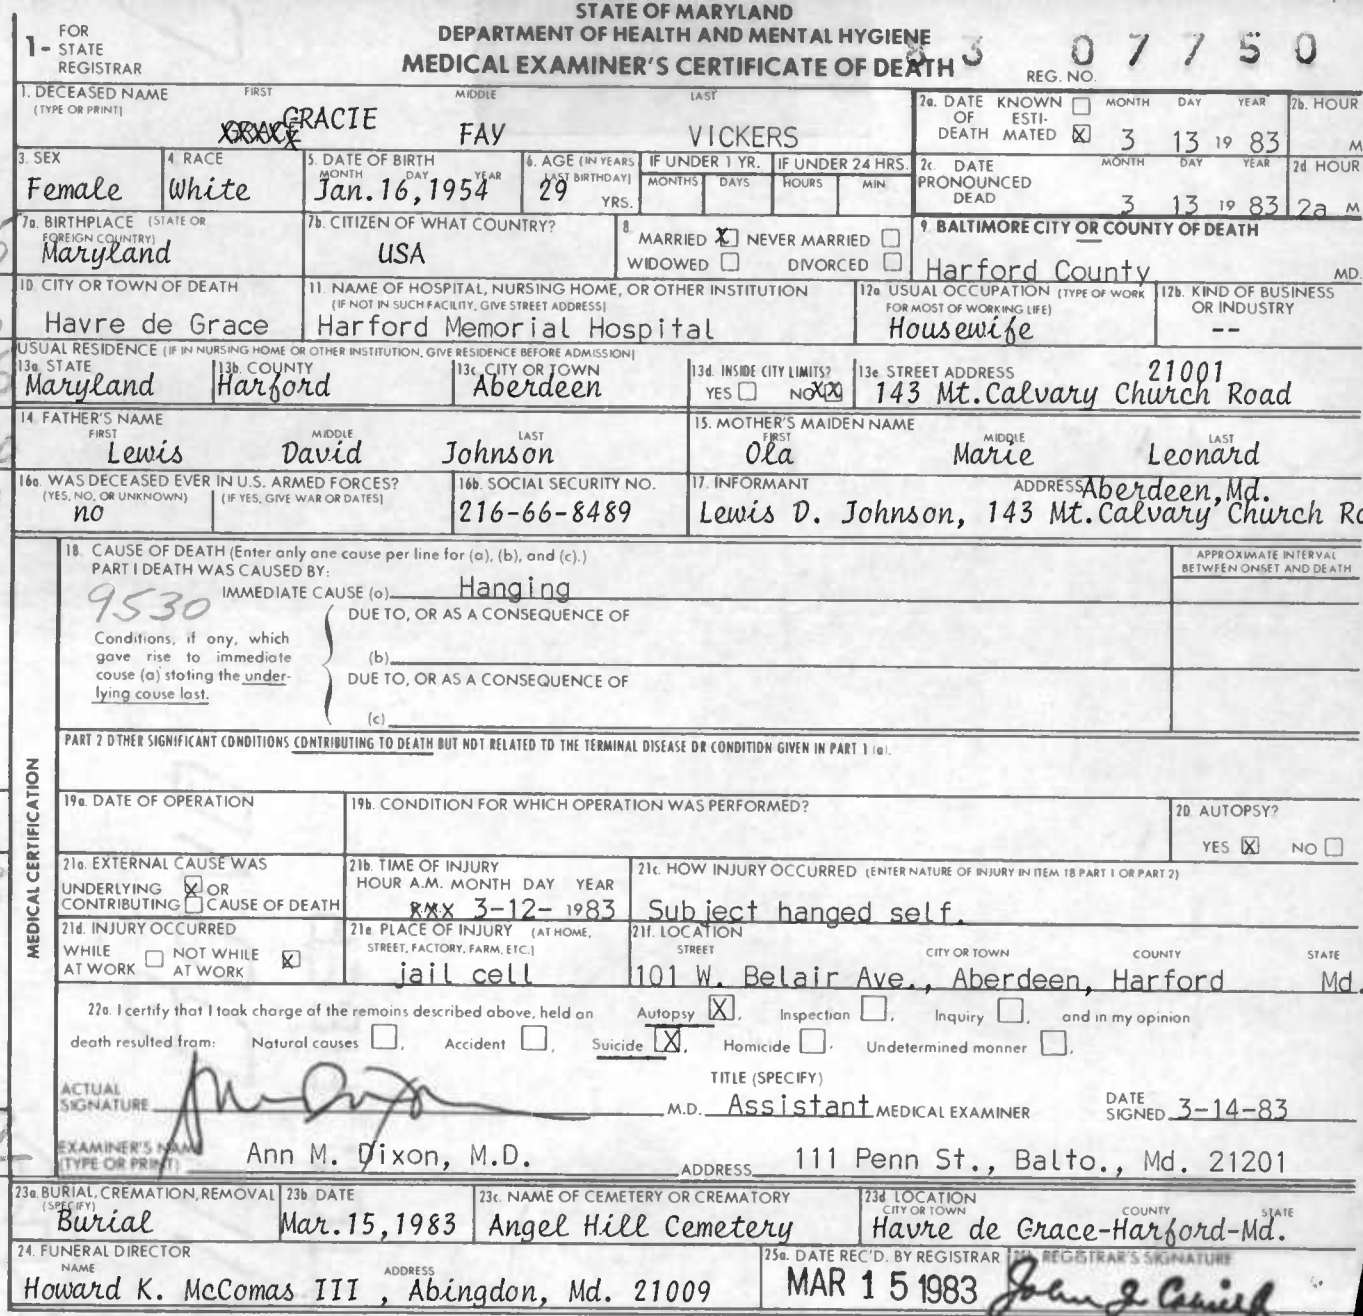 STATE OF MARYLAND
DEPARTMENT OF HEALTH AND MENTAL HYGIENE
MEDICAL EXAMINER'S CERTIFICATE OF DEATH
1- FOR STATE REGISTRAR
REG. NO. 83 07750
1. DECEASED NAME (TYPE OR PRINT) FIRST MIDDLE LAST
GRACIE FAY VICKERS
2a. DATE OF DEATH KNOWN ☐ ESTIMATED ☒ MONTH DAY YEAR 3 13 19 83 2b. HOUR M
3. SEX Female
4. RACE White
5. DATE OF BIRTH MONTH DAY YEAR Jan.16,1954
6. AGE (IN YEARS LAST BIRTHDAY) 29 YRS.
IF UNDER 1 YR. MONTHS DAYS IF UNDER 24 HRS. HOURS MIN
2c. DATE PRONOUNCED DEAD MONTH DAY YEAR 3 13 19 83 2d HOUR 2a M
7a. BIRTHPLACE (STATE OR FOREIGN COUNTRY) Maryland
7b. CITIZEN OF WHAT COUNTRY? USA
8. MARRIED ☒ NEVER MARRIED ☐ WIDOWED ☐ DIVORCED ☐
9. BALTIMORE CITY OR COUNTY OF DEATH Harford County MD.
10. CITY OR TOWN OF DEATH Havre de Grace
11. NAME OF HOSPITAL, NURSING HOME, OR OTHER INSTITUTION (IF NOT IN SUCH FACILITY, GIVE STREET ADDRESS) Harford Memorial Hospital
12a. USUAL OCCUPATION (TYPE OF WORK FOR MOST OF WORKING LIFE) Housewife
12b. KIND OF BUSINESS OR INDUSTRY --
USUAL RESIDENCE (IF IN NURSING HOME OR OTHER INSTITUTION, GIVE RESIDENCE BEFORE ADMISSION)
13a. STATE Maryland
13b. COUNTY Harford
13c. CITY OR TOWN Aberdeen
13d. INSIDE CITY LIMITS? YES ☐ NO ☒
13e. STREET ADDRESS 21001 143 Mt.Calvary Church Road
14. FATHER'S NAME FIRST MIDDLE LAST Lewis David Johnson
15. MOTHER'S MAIDEN NAME FIRST MIDDLE LAST Ola Marie Leonard
16a. WAS DECEASED EVER IN U.S. ARMED FORCES? (YES, NO, OR UNKNOWN) (IF YES, GIVE WAR OR DATES) no
16b. SOCIAL SECURITY NO. 216-66-8489
17. INFORMANT ADDRESS Aberdeen,Md.
Lewis D. Johnson, 143 Mt.Calvary Church Ro
MEDICAL CERTIFICATION
18. CAUSE OF DEATH (Enter only one cause per line for (a), (b), and (c).)
APPROXIMATE INTERVAL BETWEEN ONSET AND DEATH
PART I DEATH WAS CAUSED BY:
IMMEDIATE CAUSE (a) Hanging
9530
DUE TO, OR AS A CONSEQUENCE OF
Conditions, if any, which gave rise to immediate cause (a) stating the underlying cause last.
(b)
DUE TO, OR AS A CONSEQUENCE OF
(c)
PART 2 OTHER SIGNIFICANT CONDITIONS CONTRIBUTING TO DEATH BUT NOT RELATED TO THE TERMINAL DISEASE OR CONDITION GIVEN IN PART 1 (a).
19a. DATE OF OPERATION
19b. CONDITION FOR WHICH OPERATION WAS PERFORMED?
20. AUTOPSY? YES ☒ NO ☐
21a. EXTERNAL CAUSE WAS UNDERLYING ☒ OR CONTRIBUTING ☐ CAUSE OF DEATH
21b. TIME OF INJURY HOUR A.M. MONTH DAY YEAR 3-12- 1983
21c. HOW INJURY OCCURRED (ENTER NATURE OF INJURY IN ITEM 18 PART 1 OR PART 2) Subject hanged self.
21d. INJURY OCCURRED WHILE AT WORK ☐ NOT WHILE AT WORK ☒
21e PLACE OF INJURY (AT HOME, STREET, FACTORY, FARM, ETC.) jail cell
21f. LOCATION STREET CITY OR TOWN COUNTY STATE
101 W. Belair Ave., Aberdeen, Harford Md.
22a. I certify that I took charge of the remains described above, held an Autopsy ☒, Inspection ☐, Inquiry ☐, and in my opinion
death resulted from: Natural causes ☐, Accident ☐, Suicide ☒, Homicide ☐. Undetermined manner ☐.
ACTUAL SIGNATURE M.D. TITLE (SPECIFY) Assistant MEDICAL EXAMINER DATE SIGNED 3-14-83
EXAMINER'S NAME (TYPE OR PRINT) Ann M. Dixon, M.D. ADDRESS 111 Penn St., Balto., Md. 21201
23a. BURIAL, CREMATION, REMOVAL (SPECIFY) Burial
23b DATE Mar.15,1983
23c. NAME OF CEMETERY OR CREMATORY Angel Hill Cemetery
23d LOCATION CITY OR TOWN COUNTY STATE Havre de Grace-Harford-Md.
24. FUNERAL DIRECTOR NAME ADDRESS
Howard K. McComas III , Abingdon, Md. 21009
25a. DATE REC'D. BY REGISTRAR MAR 15 1983
REGISTRAR'S SIGNATURE